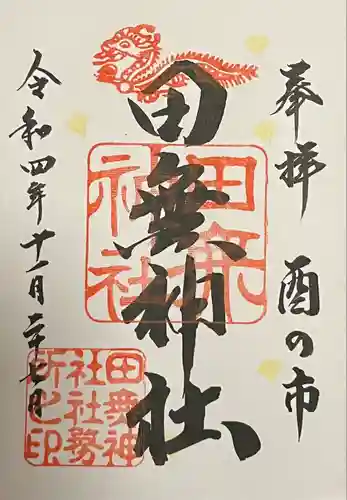 奉拝 酉の市
田無神社
令和四年十一月二十七日
田無
神社
田無神
社社務
所之印